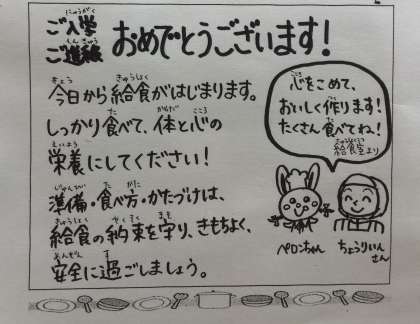 ご入学
ご進級
おめでとうございます!
今日から給食がはじまります。
しっかり食べて、体と心の
栄養にしてください!
準備・食べ方・かたづけは、
給食の約束を守り、きもちよく、
安全に過ごしましょう。
心をこめて、
おいしく作ります!
たくさん食べてね!
給食室より
ペロンちゃん
ちょうりいん
さん